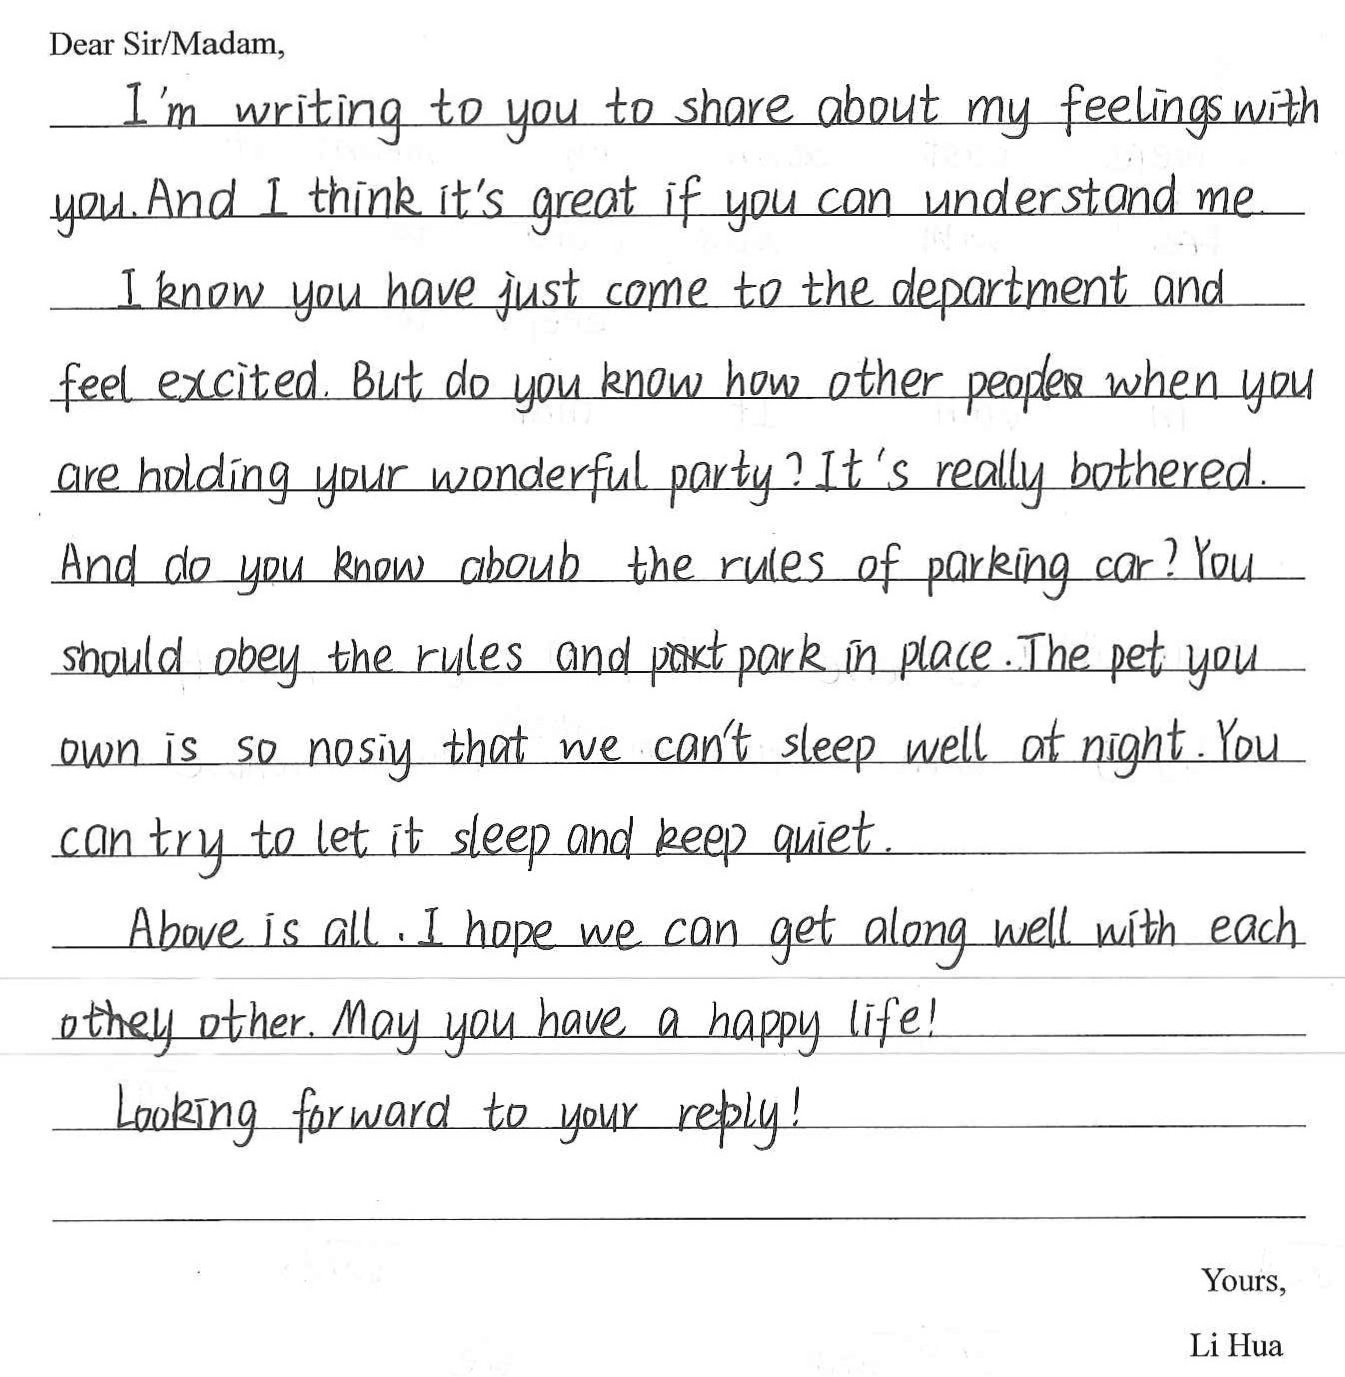 Dear Sir/Madam,
I'm writing to you to share about my feelings with
you. And I think it's great if you can understand me.
I know you have just come to the department and
feel excited. But do you know how other people when you
are holding your wonderful party? It's really bothered.
And do you know about the rules of parking car? You
should obey the rules and park in place. The pet you
own is so nosiy that we can't sleep well at night. You
can try to let it sleep and keep quiet.
Above is all. I hope we can get along well with each
othey other. May you have a happy life!
Looking forward to your reply!
Yours,
Li Hua